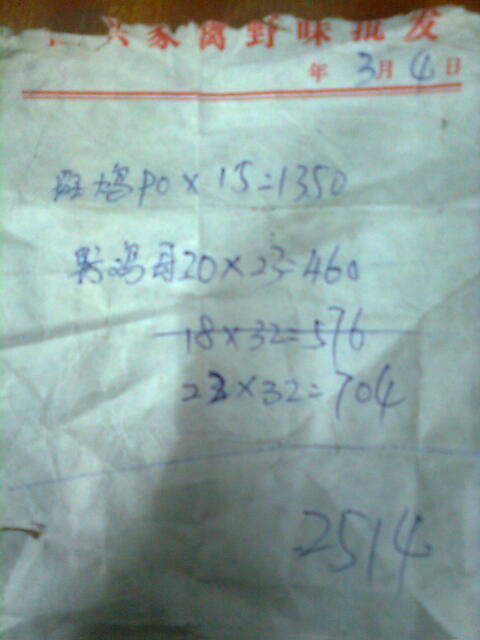 兴家禽野味批发
年 3月 4日
斑鸠90×15=1350
20×23=460
18×32=576
22×32=704
2514